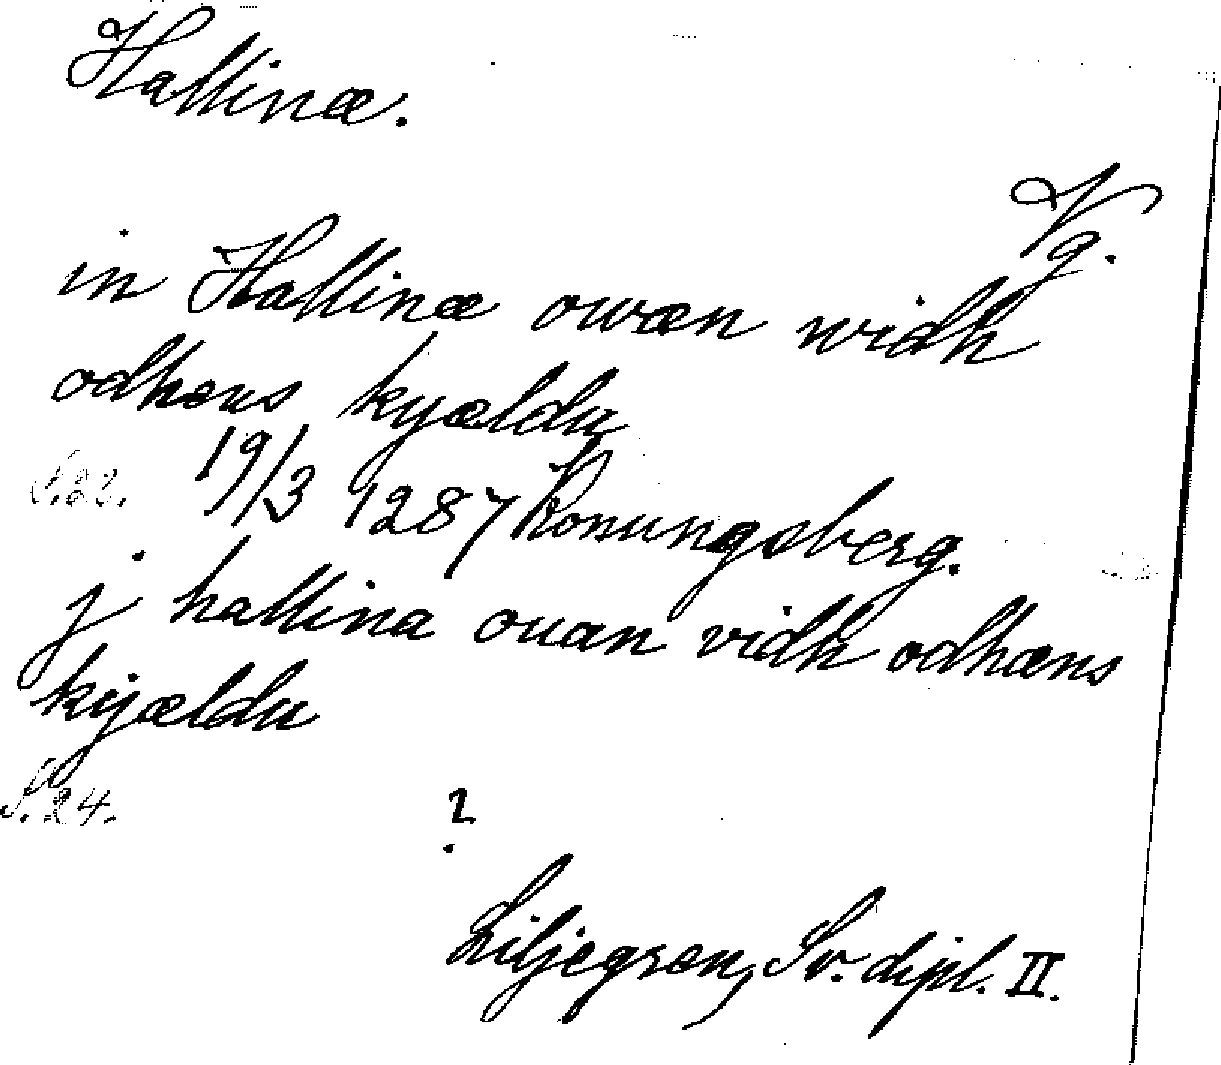 Hallinæ.
Vg.
in Hallinæ owæn widh
odhens kyældu
S. 22. 19/3 1287 Konungsberg.
j hallina ouan vidh odhæns
kyældu
S. 24. ?
Liljegren, Sv. dipl. II.